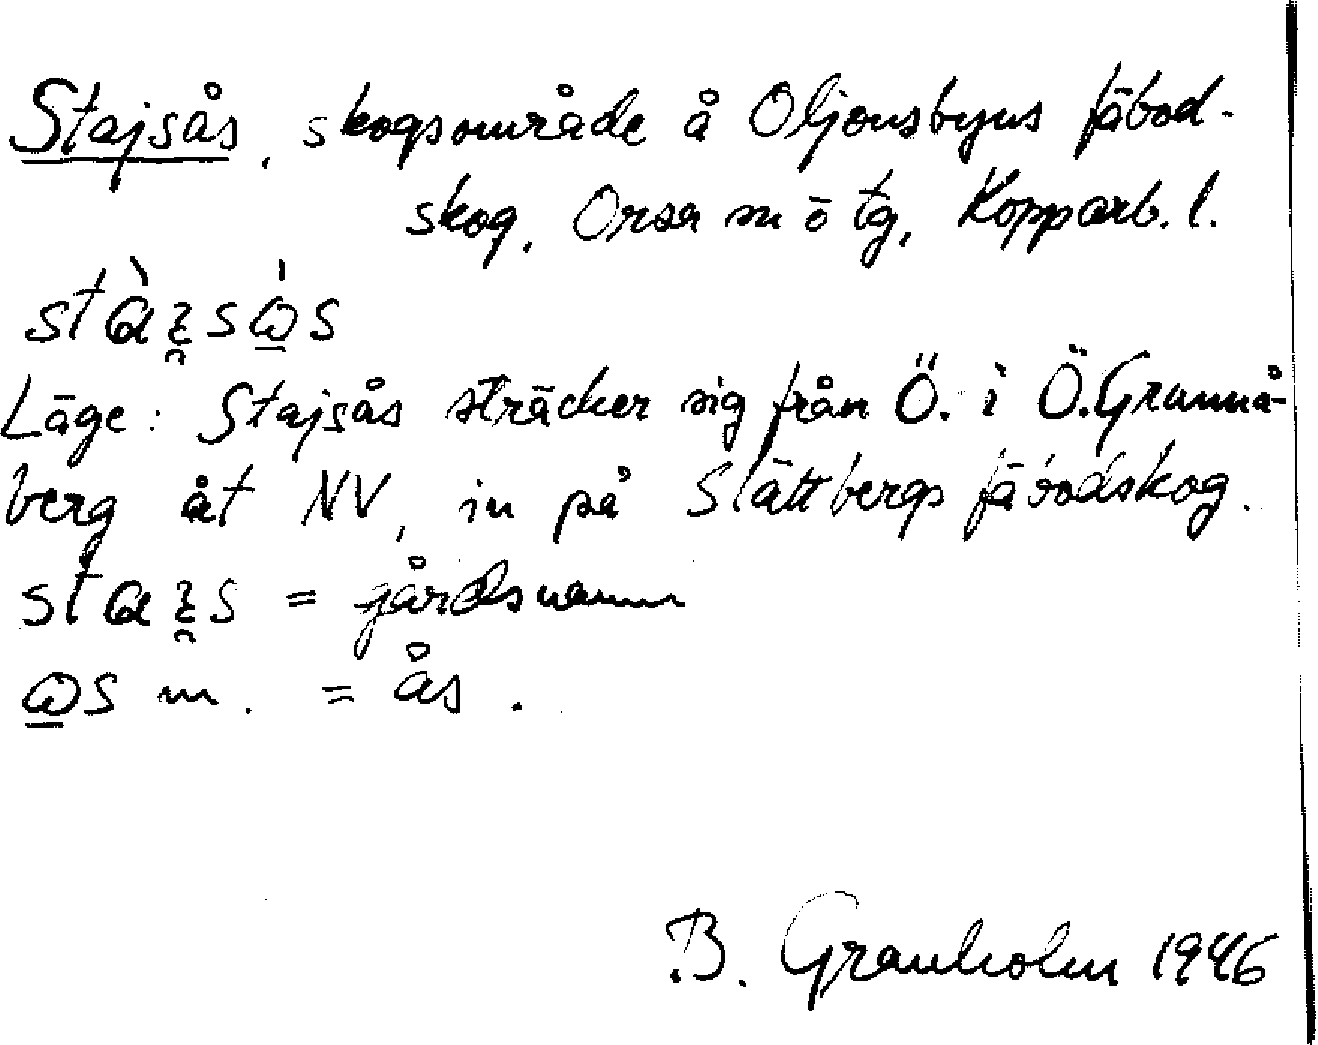 Stajsås, skogsområde å Oljonsbyns fäbod-
skog, Orsa m ö tg, Kopparb. l.
Läge: Stajsås sträcker sig från Ö. i Ö. Grunnå-
berg åt NV, in på Slättbergs fäbodskog.
= gårdsnamn
m. = ås.
B. Granholm 1946